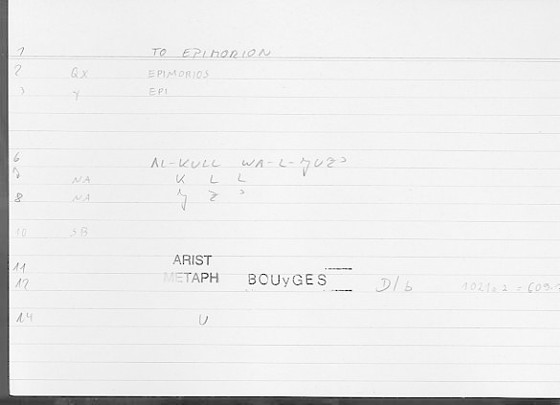 1 TO EPIMORION
2 QX EPIMORIOS
3 Y EPI
6 AL-KULL WA-L-ǦUZʾ
7 NA K L L
8 NA Ǧ Z ʾ
10 SB
11 ARIST
12 METAPH BOUyGES D/b 1021a1 = 609
14 U